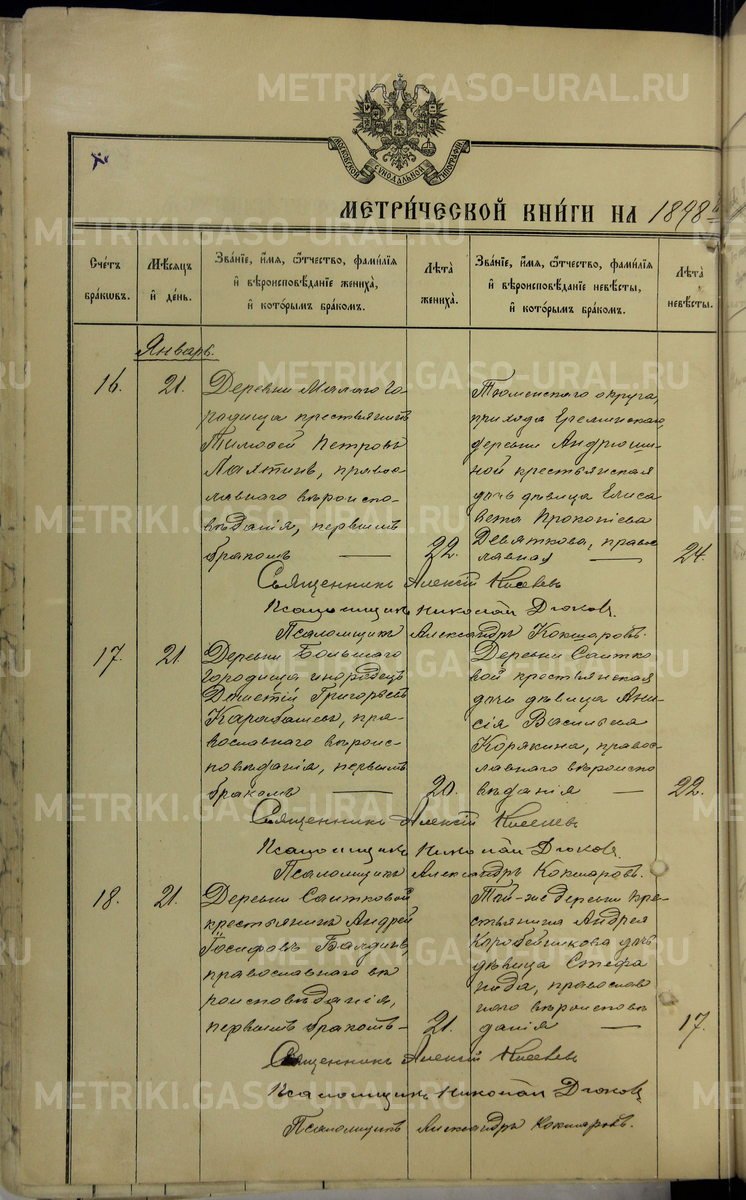 METRIKI.GASO-URAL.RU
МОСКОВСКОЙ СѴНОДАЛЬНОЙ ТИПОГРАФІИ
МЕТРИ́ЧЕСКОЙ КНИ́ГИ НА 1898
Сче́тъ бра́кωвъ.
Мѣ́сяцъ и҆ де́нь.
Зва́нїе, и҆́мя, ѻ҆́тчество, фами́лїя
и҆ вѣроисповѣ́данїе жениха̀,
и҆ кото́рымъ бра́комъ.
Лѣта̀ жениха̀.
Зва́нїе, и҆́мя, ѻ҆́тчество, фами́лїя
и҆ вѣроисповѣ́данїе невѣ́сты,
и҆ кото́рымъ бра́комъ.
Лѣта̀ невѣ́сты.
Январь.
16.
21.
Деревни Малаго Го-
родища крестьянинъ
Тимоѳей Петровъ
православнаго вѣроиспо-
вѣданія, первымъ
бракомъ —
22.
Тюменскаго округа,
прихода
деревни Андрюши-
ной крестьянская
дочь дѣвица Елиса
вета Прокопіева
Девяткова, право
славная —
24.
Священникъ Алексій
Псаломщикъ Николай Дюков.
Псаломщикъ Александръ Кокшаровъ.
17.
21
Деревни Большаго
Городища инородецъ
Григорьевъ
Карабашевъ, пра-
вославнаго вѣроис-
повѣданія, первымъ
бракомъ —
20.
Деревни Саитко
вой крестьянская
дочь дѣвица Ани-
сія Васильева
Корякина, правос
лавнаго вѣроиспо
вѣданія —
22.
Священникъ Алексій
Псаломщикъ Николай Дюков.
Псаломщикъ Александръ Кокшаровъ.
18.
21.
Деревни Саитковой
крестьянинъ Андрей
Іосифовъ Балдинъ,
православнаго вѣ
роисповѣданія,
первымъ бракомъ-
21.
Той-же деревни кре-
стьянина Андрея
Коробейникова дочь
дѣвица Стефа
нида, православ
наго вѣроисповѣ
данія —
17.
Священникъ Алексій
Псаломщикъ Николай Дюков.
Псаломщикъ Александръ Кокшаровъ.